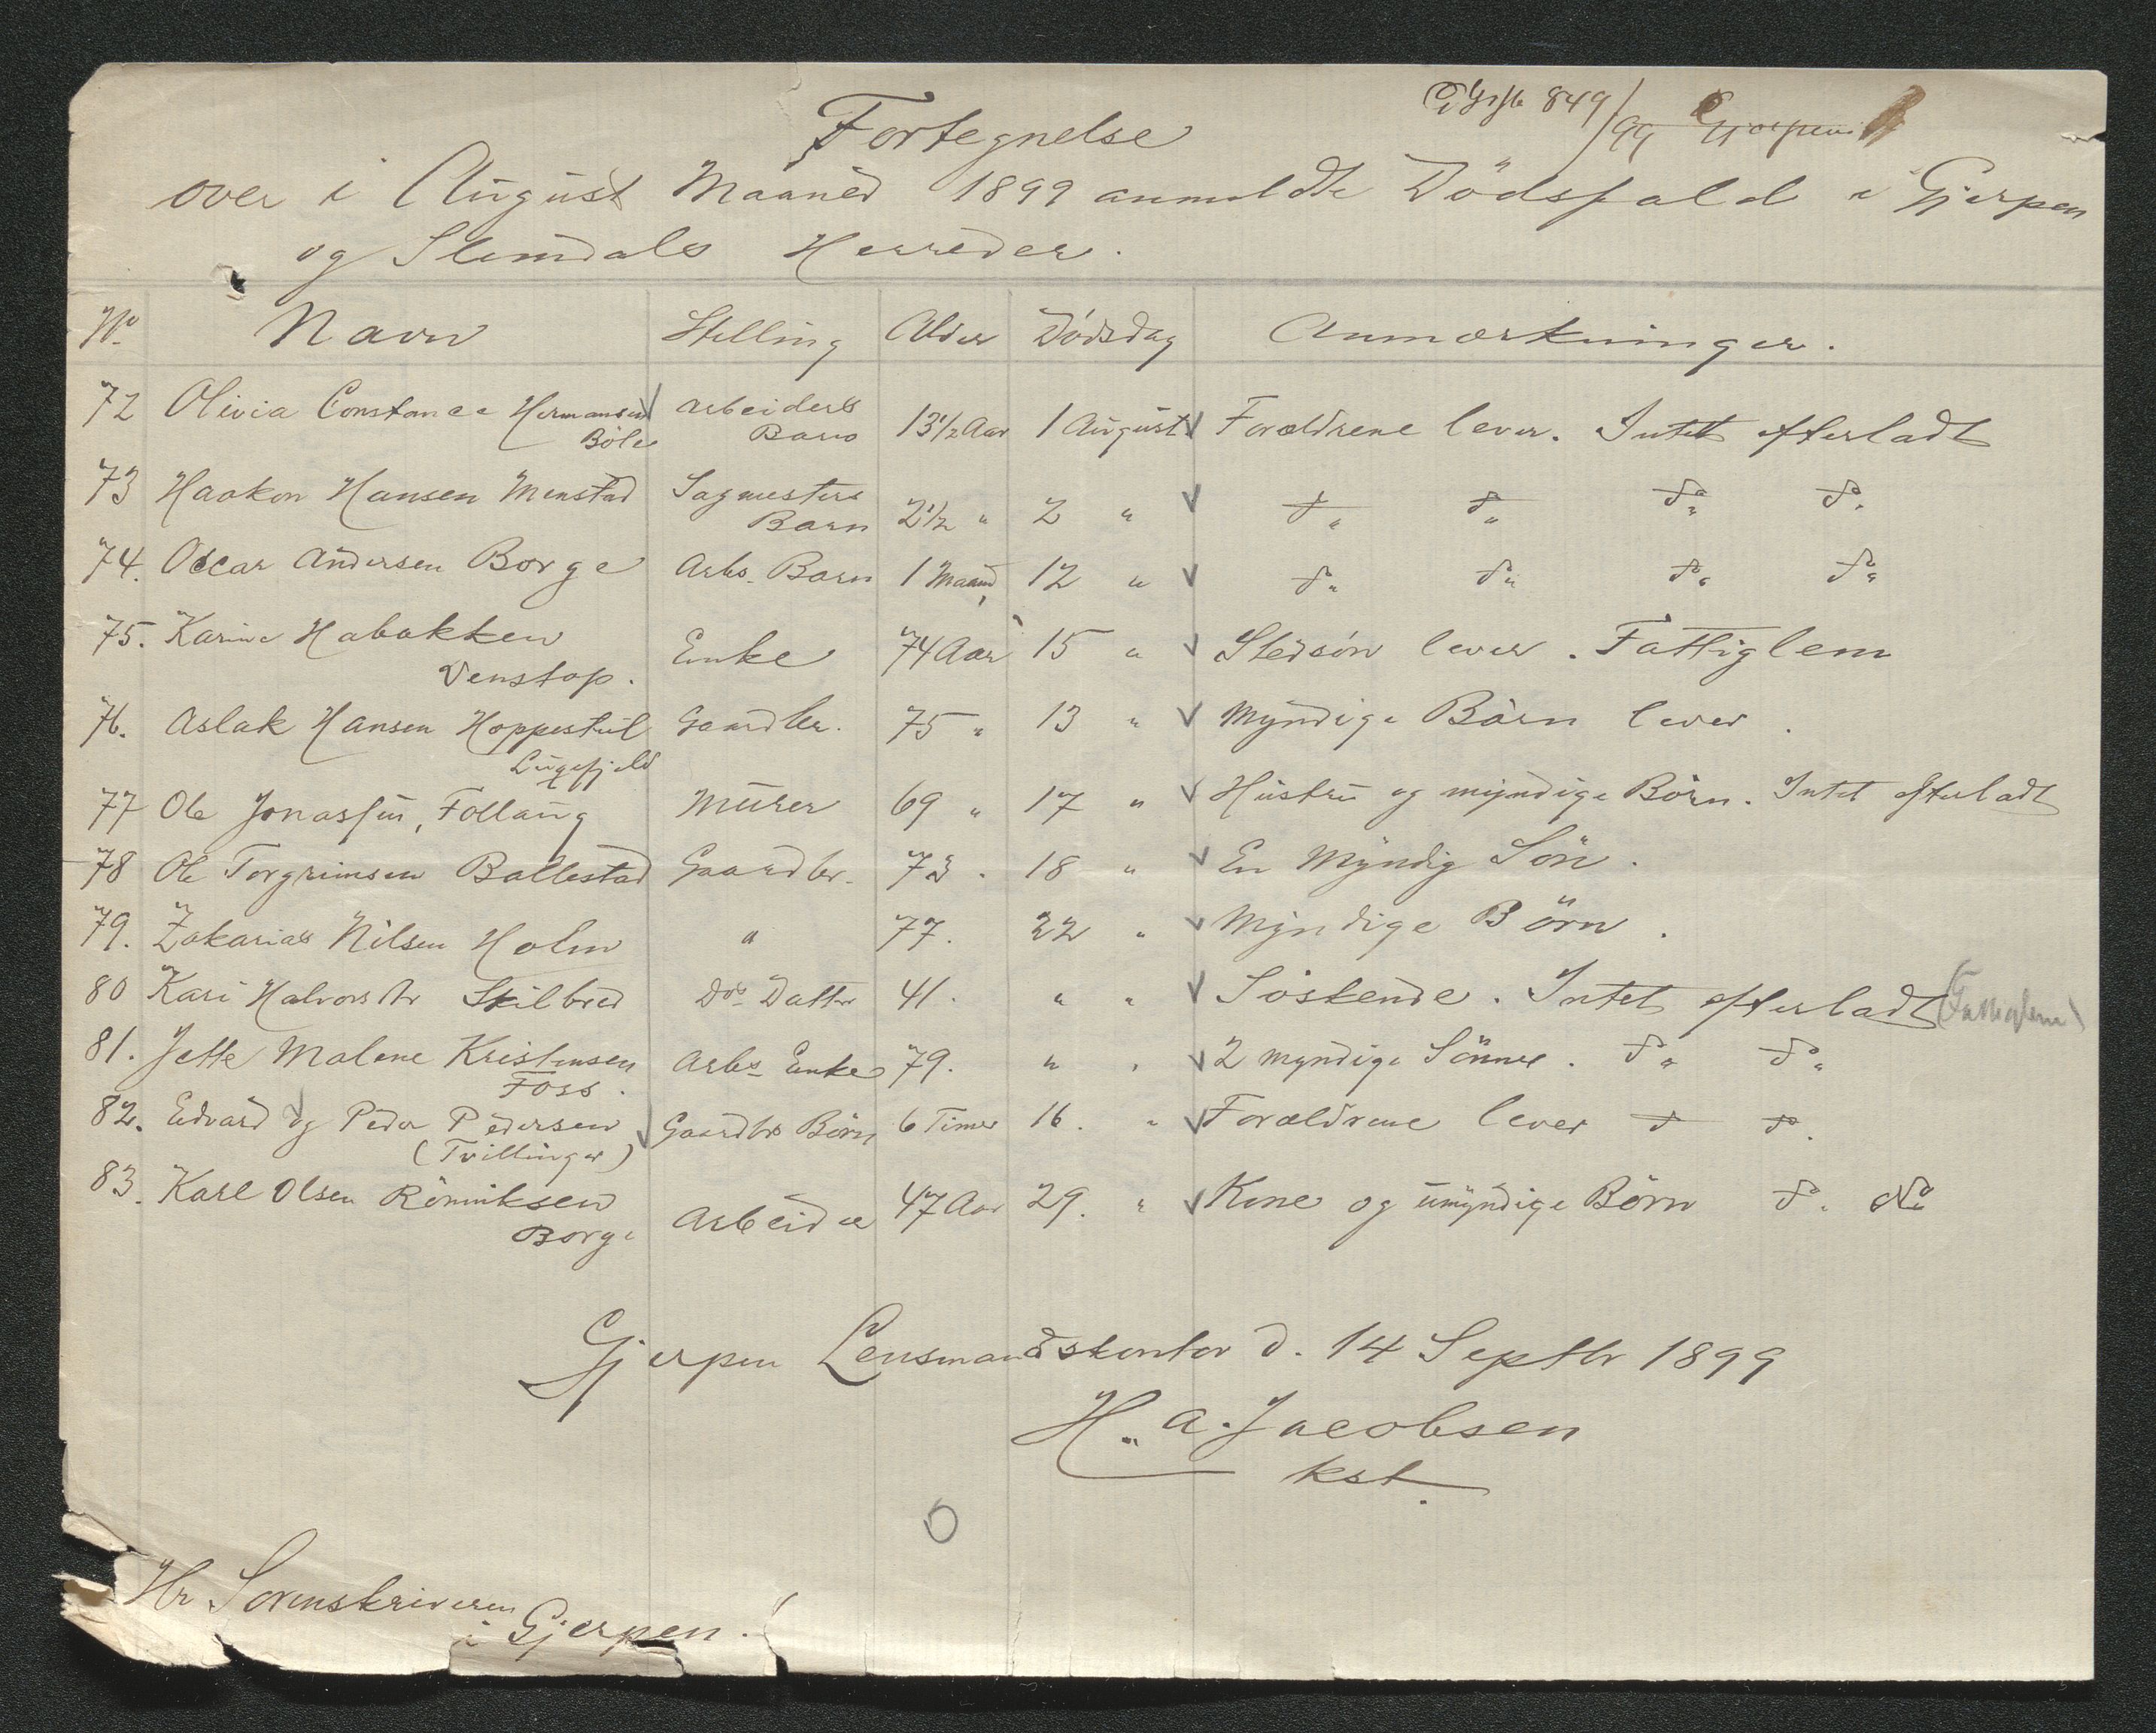 849/99
Fortegnelse
over i August Maaned 1899 anmeldte Dödsfald i Gjerpen
og Slemdals Herreder.
No. Navn Stilling Alder Dödsdag Anmærkninger.
72 Olivia Constance Hermansen Arbeiders 13½ Aar 1 August Forældrene lever. Intet efterladt
Böle Barn
73 Haakon Hansen Menstad Sagmesters 2½ " 2 " do do do do
Barn
74. Oscar Andersen Borge Arbs. Barn 1 Maaned 12 " do do do do
75. Karine Habakken Enke 74 Aar 15 " Stedsön lever. Fattiglem
Venstop.
76. Aslak Hansen Hoppestul Gaardbr. 75 " 13 " Myndige Börn lever.
Luxefjeld
77 Ole Jonassen, Follaug Murer 69 " 17 " Hustru og myndige Börn. Intet efterladt
78 Ole Torgrimsen Ballestad Gaardbr. 73 " 18 " En Myndig Sön.
79. Zakarias Nilsen Holm " 77. 22 " Myndige Börn.
80 Kari Halvorsdtr Skilbred Dos Datter 41. " " Söskende. Intet efterladt (Fattiglem)
81. Jette Malene Kristensen Arbs Enke 79. " " 2 myndige Sönner. do do
Foss.
82. Edvard og Peder Pedersen Gaardbrs Börn 6 Timer 16. " Forældrene lever do do.
(Tvillinger)
83. Karl Olsen Römiksen Arbeider 47 Aar 29. " Kone og umyndige Börn do. do
Borge
Gjerpen Lensmandskontor d. 14 Septbr 1899
H. A. Jacobsen
kst.
Hr Sorenskriveren
i Gjerpen.